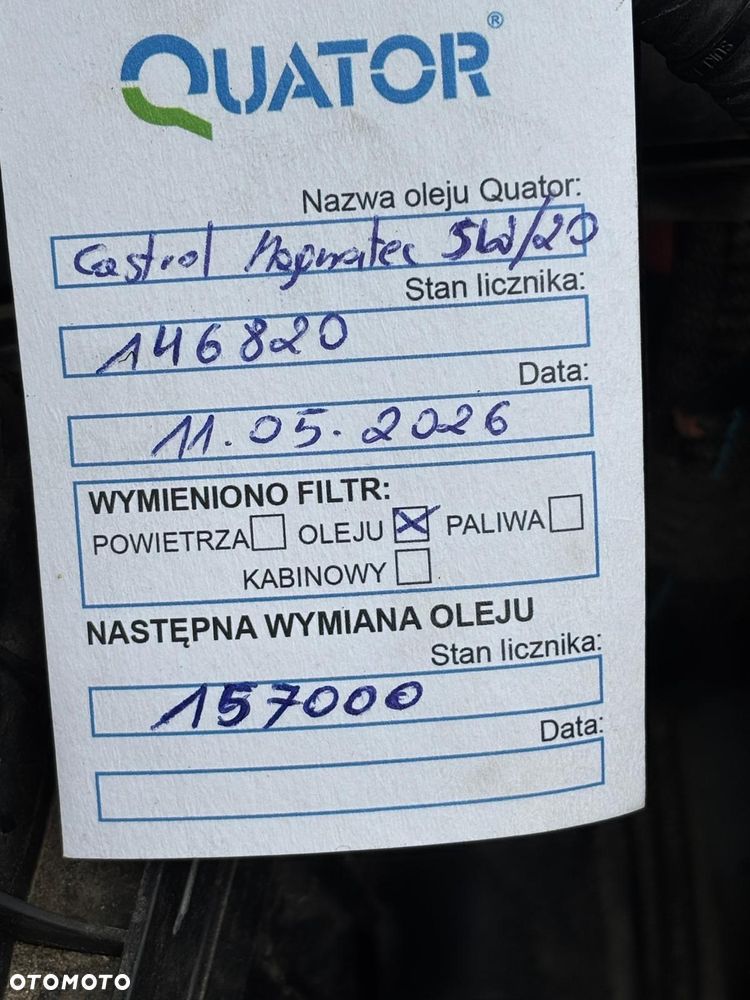 QUATOR®
Nazwa oleju Quator:
Castrol Magnatec 5W/20
Stan licznika:
146820
Data:
11.05.2026
WYMIENIONO FILTR:
POWIETRZA OLEJU PALIWA
KABINOWY
NASTĘPNA WYMIANA OLEJU
Stan licznika:
157000
Data:
OTOMOTO